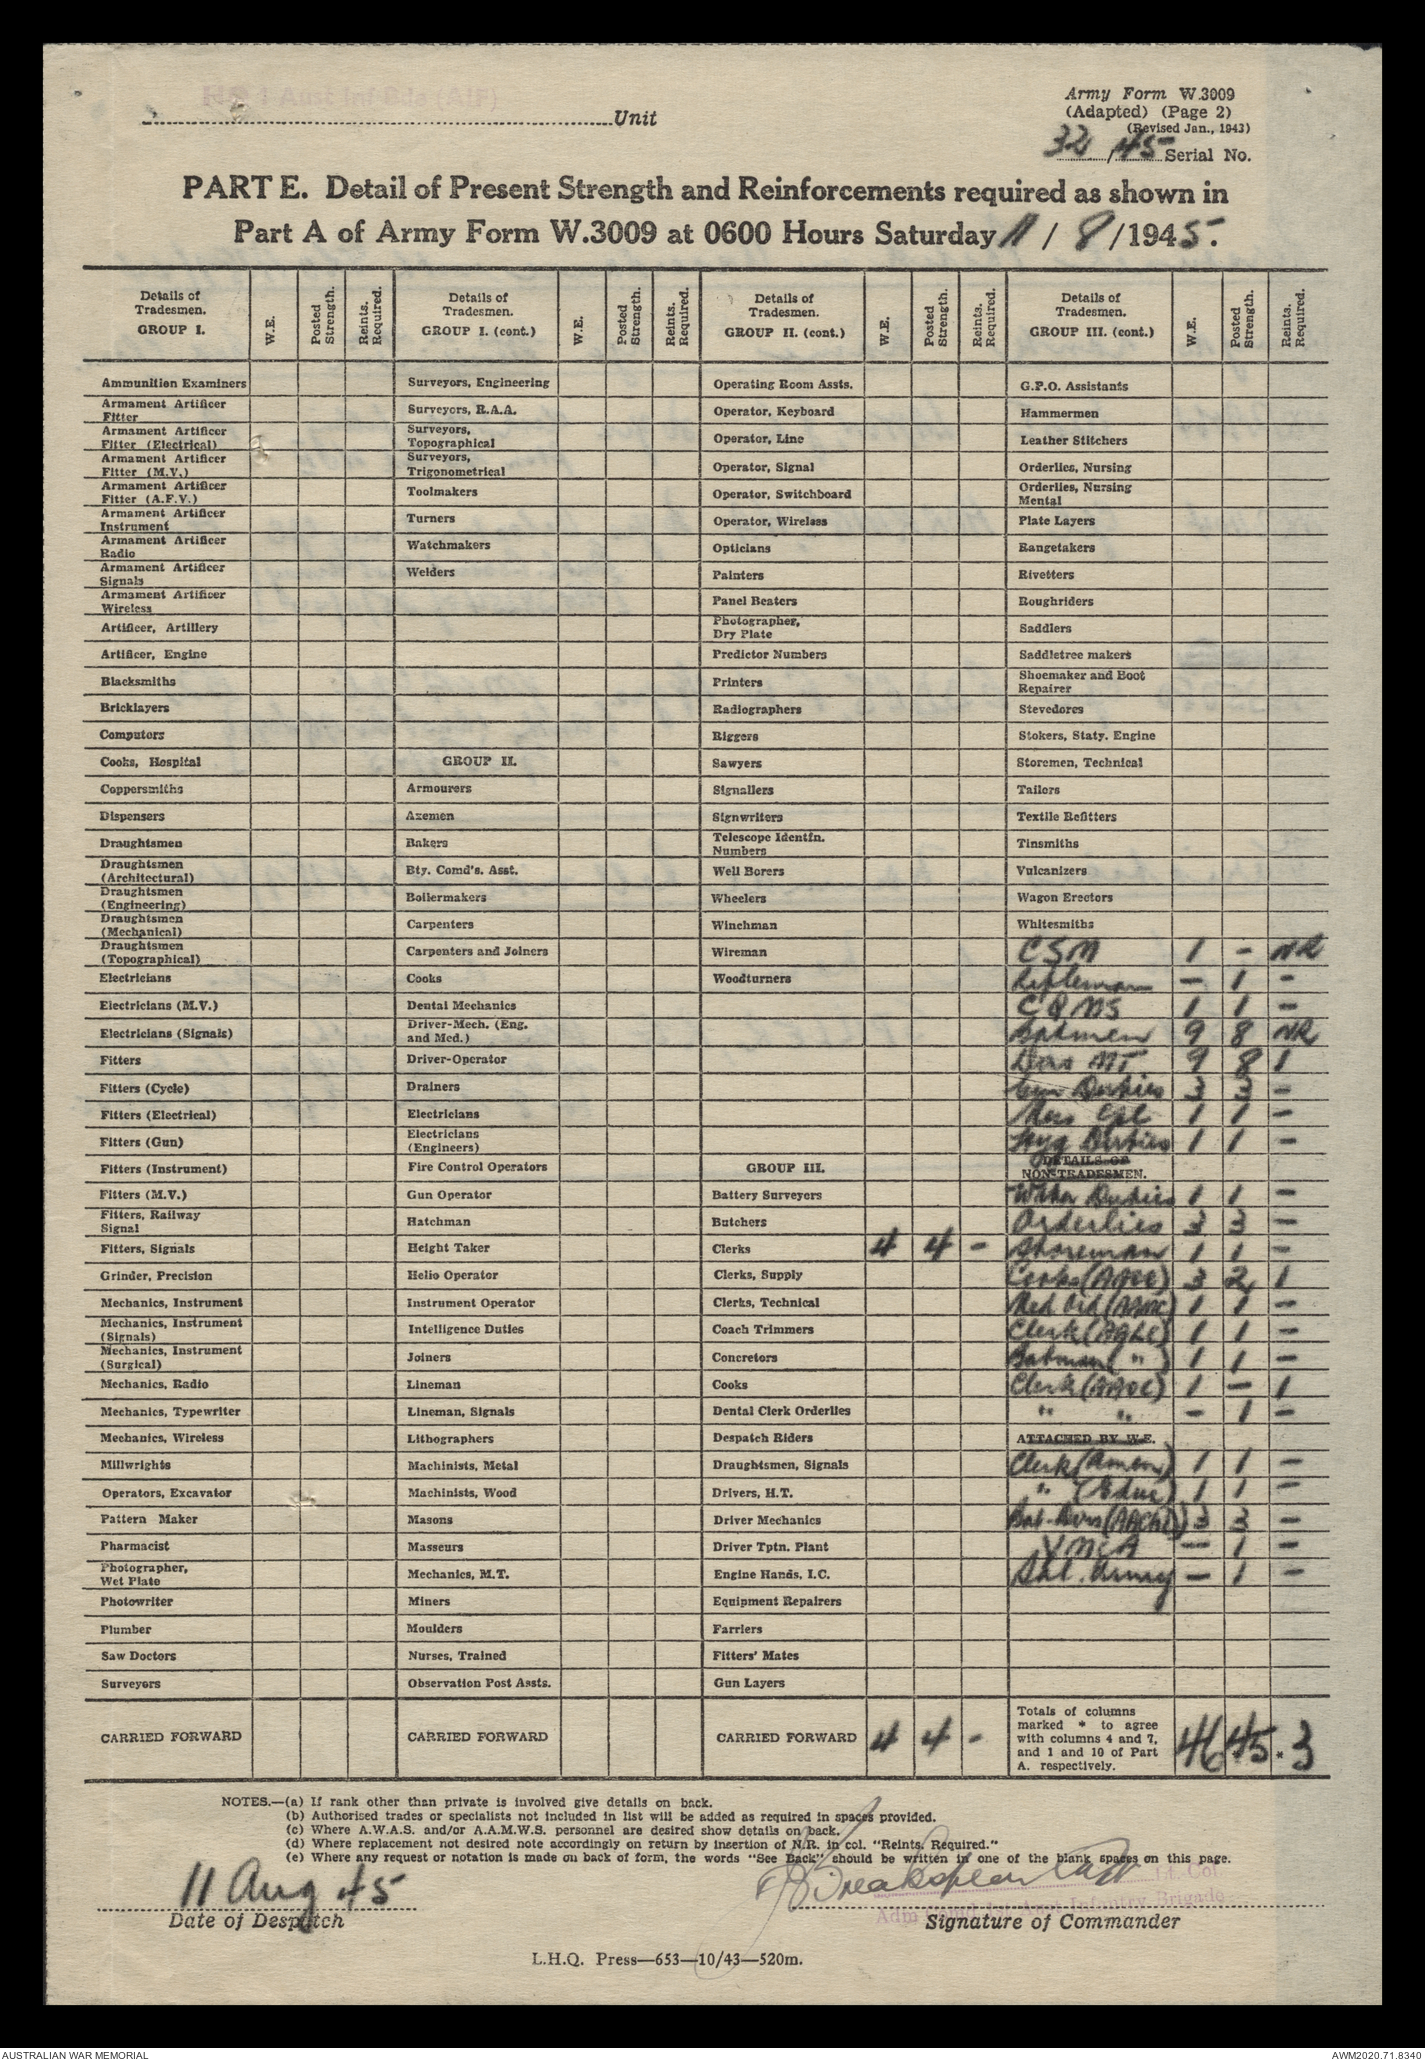 H.Q. 1 Aust Inf Bde (AIF)
Unit
Army Form W.3009
(Adapted) (Page 2)
(Revised Jan., 1943)
32/45 Serial No.
PART E. Detail of Present Strength and Reinforcements required as shown in
Part A of Army Form W.3009 at 0600 Hours Saturday 11 / 8 /1945.
Details of Tradesmen. GROUP I. W.E. Posted Strength. Reints. Required. Details of Tradesmen. GROUP I. (cont.) W.E. Posted Strength. Reints. Required. Details of Tradesmen. GROUP II. (cont.) W.E. Posted Strength. Reints. Required. Details of Tradesmen. GROUP III. (cont.) W.E. Posted Strength. Reints. Required.
Ammunition Examiners Surveyors, Engineering Operating Room Assts. G.P.O. Assistants
Armament Artificer Fitter Surveyors, R.A.A. Operator, Keyboard Hammermen
Armament Artificer Fitter (Electrical) Surveyors, Topographical Operator, Line Leather Stitchers
Armament Artificer Fitter (M.V.) Surveyors, Trigonometrical Operator, Signal Orderlies, Nursing
Armament Artificer Fitter (A.F.V.) Toolmakers Operator, Switchboard Orderlies, Nursing Mental
Armament Artificer Instrument Turners Operator, Wireless Plate Layers
Armament Artificer Radio Watchmakers Opticians Rangetakers
Armament Artificer Signals Welders Painters Rivetters
Armament Artificer Wireless Panel Beaters Roughriders
Artificer, Artillery Photographer, Dry Plate Saddlers
Artificer, Engine Predictor Numbers Saddletree makers
Blacksmiths Printers Shoemaker and Boot Repairer
Bricklayers Radiographers Stevedores
Computors Riggers Stokers, Staty. Engine
Cooks, Hospital GROUP II. Sawyers Storemen, Technical
Coppersmiths Armourers Signallers Tailors
Dispensers Axemen Signwriters Textile Refitters
Draughtsmen Bakers Telescope Identfn. Numbers Tinsmiths
Draughtsmen (Architectural) Bty. Comd's. Asst. Well Borers Vulcanizers
Draughtsmen (Engineering) Boilermakers Wheelers Wagon Erectors
Draughtsmen (Mechanical) Carpenters Winchman Whitesmiths
Draughtsmen (Topographical) Carpenters and Joiners Wireman CSM 1 - NR
Electricians Cooks Woodturners Rifleman - 1 -
Electricians (M.V.) Dental Mechanics CQMS 1 1 -
Electricians (Signals) Driver-Mech. (Eng. and Med.) Batmen 9 8 NR
Fitters Driver-Operator Dvrs MT 9 8 1
Fitters (Cycle) Drainers Gen Duties 3 3 -
Fitters (Electrical) Electricians Mess Cpl 1 1 -
Fitters (Gun) Electricians (Engineers) Hyg Duties 1 1 -
Fitters (Instrument) Fire Control Operators GROUP III. DETAILS OF NON-TRADESMEN.
Fitters (M.V.) Gun Operator Battery Surveyors Water Duties 1 1 -
Fitters, Railway Signal Hatchman Butchers Orderlies 3 3 -
Fitters, Signals Height Taker Clerks 4 4 - Storeman 1 1 -
Grinder, Precision Helio Operator Clerks, Supply Cooks (AACC) 3 2 1
Mechanics, Instrument Instrument Operator Clerks, Technical Med Ord (AAMC) 1 1 -
Mechanics, Instrument (Signals) Intelligence Duties Coach Trimmers Clerk (AALC) 1 1 -
Mechanics, Instrument (Surgical) Joiners Concretors Batman ( " ) 1 1 -
Mechanics, Radio Lineman Cooks Clerk (AAOC) 1 - 1
Mechanics, Typewriter Lineman, Signals Dental Clerk Orderlies " " - 1 -
Mechanics, Wireless Lithographers Despatch Riders ATTACHED BY W.E.
Millwrights Machinists, Metal Draughtsmen, Signals Clerk (Amen) 1 1 -
Operators, Excavator Machinists, Wood Drivers, H.T. " (Educ) 1 1 -
Pattern Maker Masons Driver Mechanics Bat-Dvrs (AAChD) 3 3 -
Pharmacist Masseurs Driver Tptn. Plant YMCA - 1 -
Photographer, Wet Plate Mechanics, M.T. Engine Hands, I.C. Sal. Army - 1 -
Photowriter Miners Equipment Repairers
Plumber Moulders Farriers
Saw Doctors Nurses, Trained Fitters' Mates
Surveyors Observation Post Assts. Gun Layers
CARRIED FORWARD CARRIED FORWARD CARRIED FORWARD 4 4 - Totals of columns marked * to agree with columns 4 and 7, and 1 and 10 of Part A. respectively. 46 *45 *3
NOTES.—(a) If rank other than private is involved give details on back.
(b) Authorised trades or specialists not included in list will be added as required in spaces provided.
(c) Where A.W.A.S. and/or A.A.M.W.S. personnel are desired show details on back.
(d) Where replacement not desired note accordingly on return by insertion of N.R. in col. "Reints. Required."
(e) Where any request or notation is made on back of form, the words "See Back" should be written in one of the blank spaces on this page.
11 Aug 45
Lt-Col
Adm Comd 1st Aust Infantry Brigade
Date of Despatch
Signature of Commander
L.H.Q. Press—653—10/43—520m.
AUSTRALIAN WAR MEMORIAL
AWM2020.71.8340